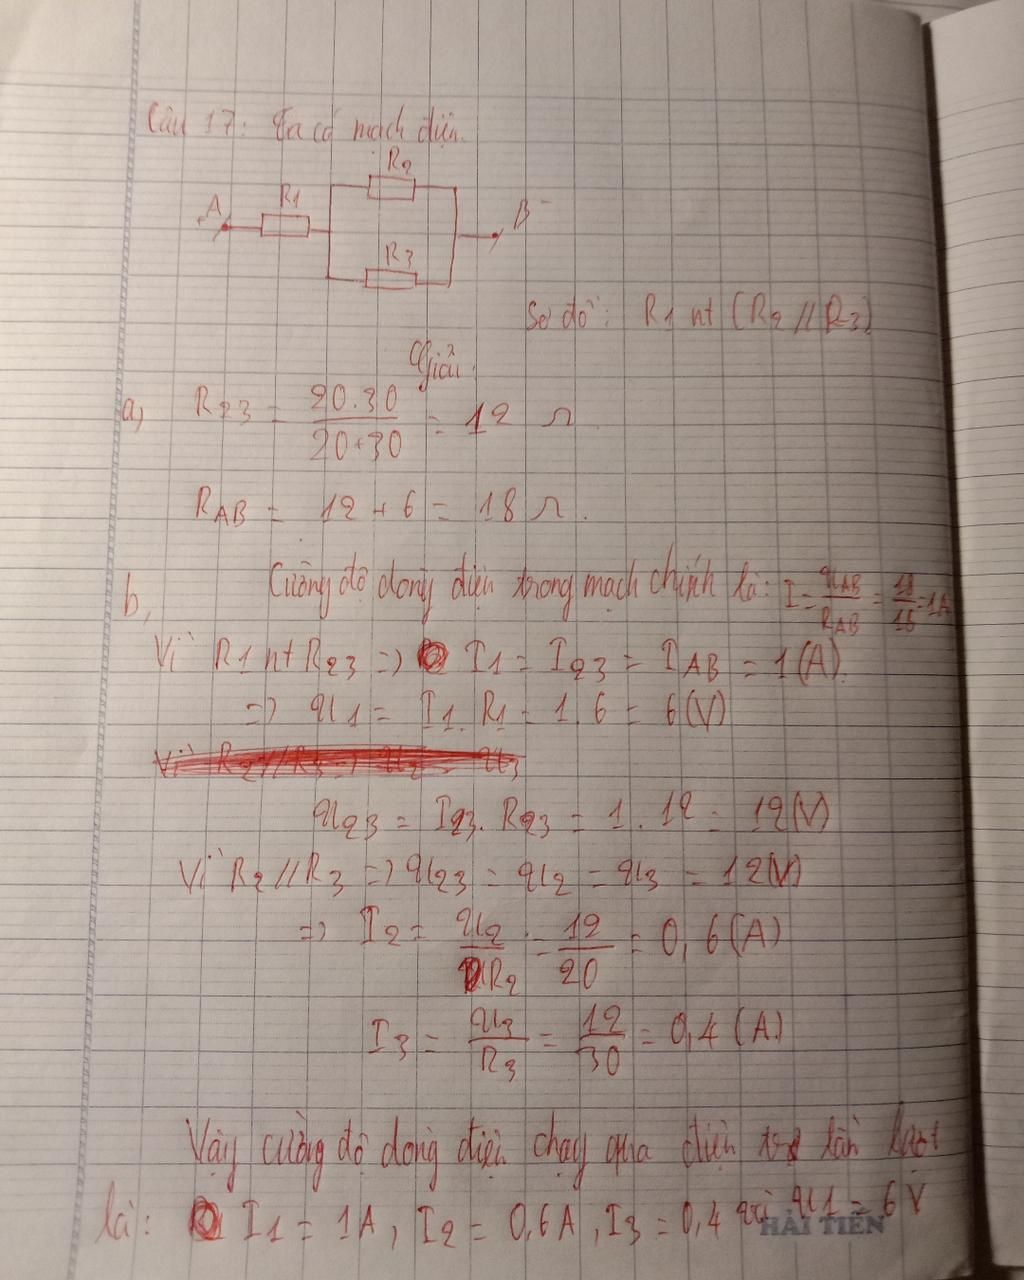 Câu 17: Ta có mạch điện.
R2
A R1 B
R3
Sơ đồ: R1 nt (R2 // R3)
Giải
a, R23 = 20.30 / 20+30 = 12 Ω
RAB = 12 + 6 = 18 Ω.
b, Cường độ dòng điện trong mạch chính là: I = UAB / RAB = 18 / 18 = 1A
Vì R1 nt R23 => I1 = I23 = IAB = 1(A).
=> U1 = I1. R1 = 1.6 = 6(V)
Vì R2 // R3 => U2 = U3
U23 = I23. R23 = 1. 12 = 12(V)
Vì R2 // R3 => U23 = U2 = U3 = 12(V)
=> I2 = U2 / R2 = 12 / 20 = 0,6(A)
I3 = U3 / R3 = 12 / 30 = 0,4 (A)
Vậy cường độ dòng điện chạy qua điện trở lần lượt
là: I1 = 1A, I2 = 0,6A, I3 = 0,4 và U1 = 6V
HẢI TIẾN